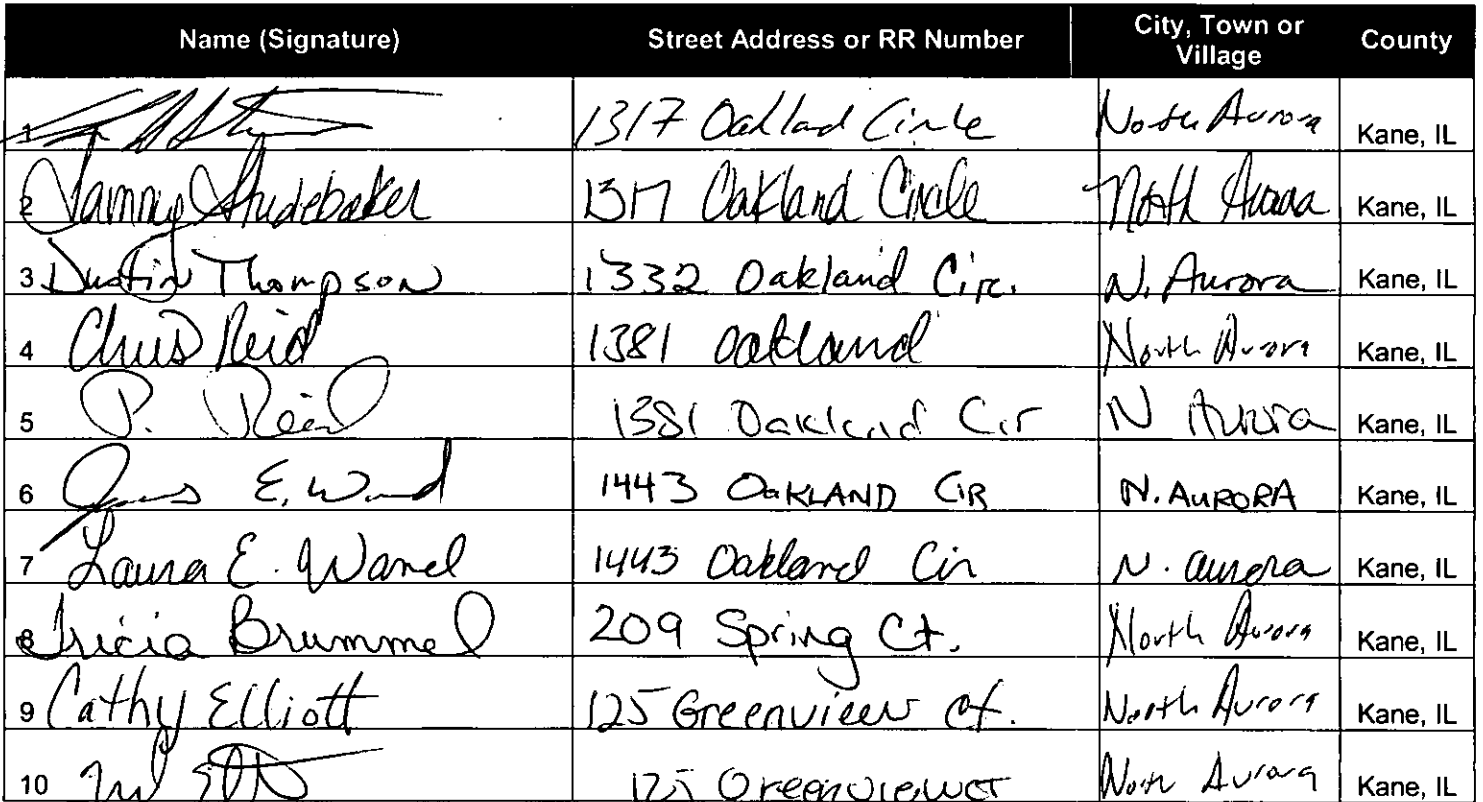 Name (Signature) Street Address or RR Number City, Town or Village County
1 1317 Oakland Circle North Aurora Kane, IL
2 Tammy Studebaker 1317 Oakland Circle North Aurora Kane, IL
3 Dustin Thompson 1332 Oakland Circ. N. Aurora Kane, IL
4 Chris Reid 1381 Oakland North Aurora Kane, IL
5 P. Reid 1381 Oakland Cir N Aurora Kane, IL
6 James E. 1443 OAKLAND CIR N. AURORA Kane, IL
7 Laura E. 1443 Oakland Cir N. Aurora Kane, IL
8 Tricia Brummel 209 Spring Ct. North Aurora Kane, IL
9 Cathy Elliott 125 Greenview Ct. North Aurora Kane, IL
10 125 Greenview CT North Aurora Kane, IL